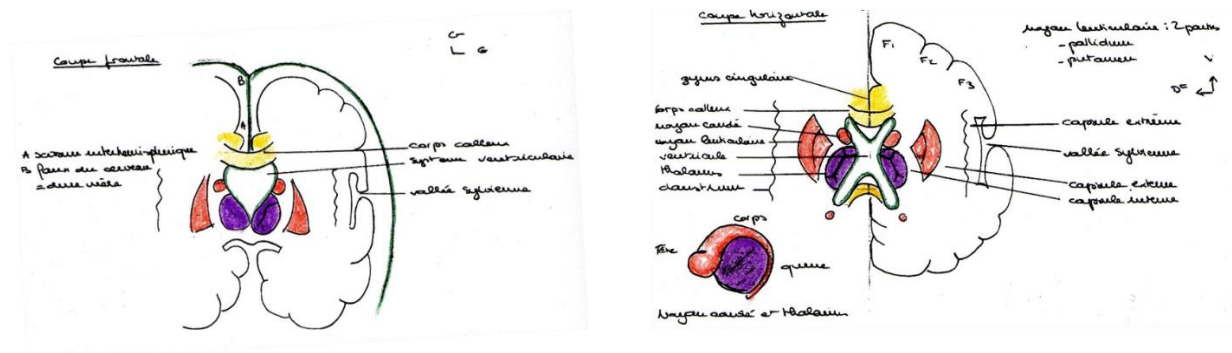 Coupe frontale
Cr
G
B
A
A scissure interhémisphérique
B faux du cerveau
= dure mère
corps calleux
système ventriculaire
vallée sylvienne
Coupe horizontale
noyau lenticulaire : 2 parties
- pallidum
- putamen
V
F1
F2
F3
gyrus cingulaire
corps calleux
noyau caudé
noyau lenticulaire
ventricule
thalamus
claustrum
capsule extrême
vallée sylvienne
capsule externe
capsule interne
corps
Tête
queue
Noyau caudé et thalamus